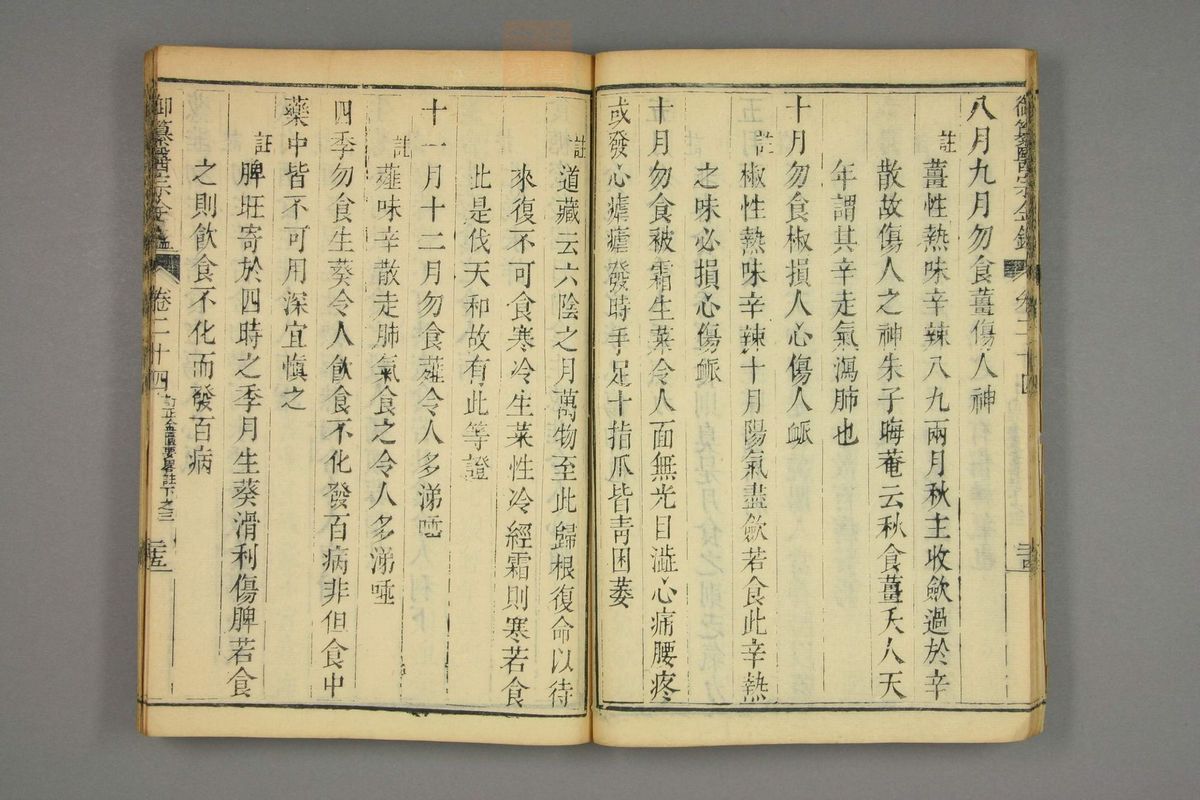 八月九月勿食薑傷人神
註
薑性熱味辛辣八九兩月秋主收歛過於辛
散故傷人之神朱子晦菴云秋食薑夭人天
年謂其辛走氣瀉肺也
十月勿食椒損人心傷人衇
註
椒性熱味辛辣十月陽氣盡歛若食此辛熱
之味必損心傷衇
十月勿食被霜生菜令人面無光目澁心痛腰疼
或發心瘧瘧發時手足十指爪皆青困萎
註
道藏云六陰之月萬物至此歸根復命以待
來復不可食寒冷生菜性冷經霜則寒若食
此是伐天和故有此等證
十一月十二月勿食薤令人多涕唾
註
薤味辛散走肺氣食之令人多涕唾
四季勿食生葵令人飲食不化發百病非但食中
藥中皆不可用深宜慎之
註
脾旺寄於四時之季月生葵滑利傷脾若食
之則飲食不化而發百病
御纂醫宗金鑑
卷二十四
訂正金匱要畧註下之三
二十五